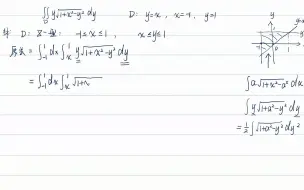 ∬ y√(1+x²-y²) dy   D: y=x, x=-1, y=1
解: D:   -1≤x≤1, x≤y≤1
原式 = ∫₋₁¹ dx ∫ₓ¹ y√(1+x²-y²) dy
= ∫₋₁¹ dx ∫ₓ¹ √(1+x
∫ a√(1+x²-a²) dx
∫ y√(1+a²-y²) dy
= ½ ∫ √(1+a²-y²) dy²